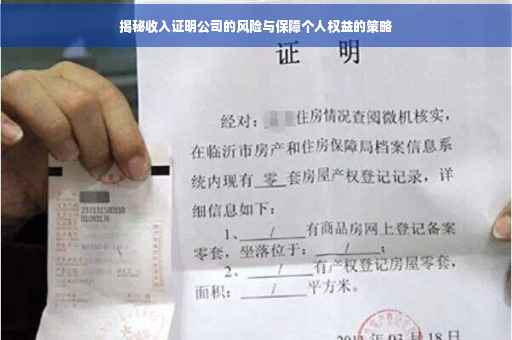 揭秘收入证明公司的风险与保障个人权益的策略
证 明
经对：住房情况查阅微机核实，
在临沂市房产和住房保障局档案信息系
统内现有 零 套房屋产权登记记录，详
细信息如下：
1、 / 有商品房网上登记备案
零套，坐落位于： / ；
2、 / 有产权登记房屋零套，
面积： / 平方米。